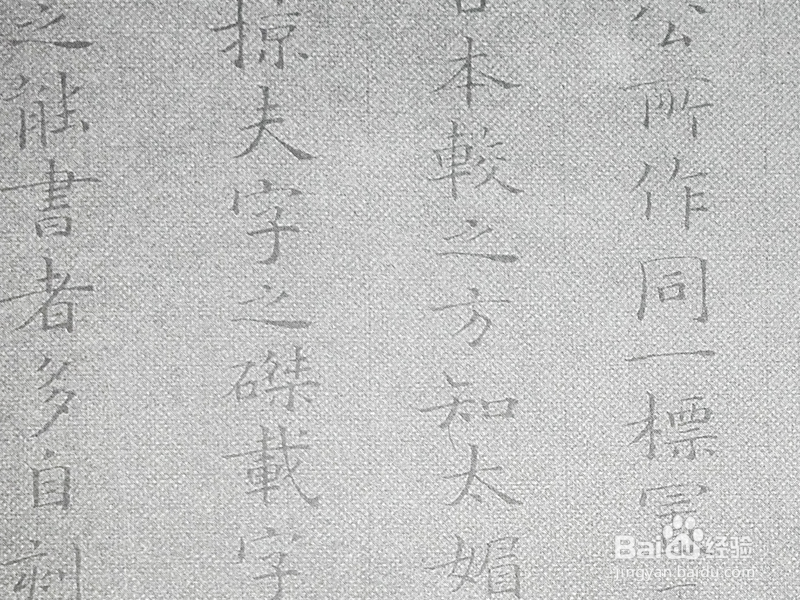 公所作同一標
本較之方知太媚
掠夫字之磔載字
之能書者多自刻
Baidu经验
jingyan.baidu.com